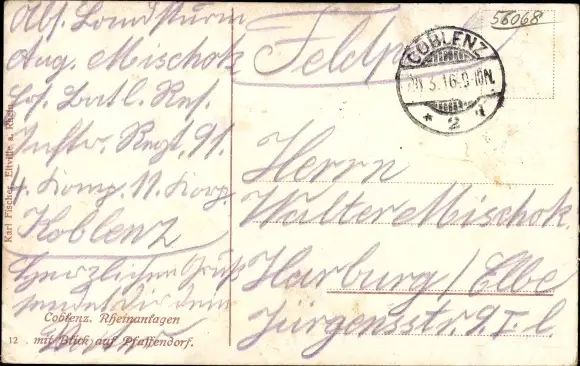 Abs. Landsturm
Aug. Mischok
Batl. Res.
Inftr. Regt. 91.
4. Komp. 11. Korp.
Koblenz
Herzlichen Gruß
sendet dir dein
Coblenz. Rheinanlagen
12 mit Blick auf Pfaffendorf.
Karl Fischer, Eltville a. Rhein
Feldp
56068
COBLENZ
3.16.9-10N.
* 2
Herrn
Walter Mischok.
Harburg/Elbe
Jürgensstr. 9. I. l.